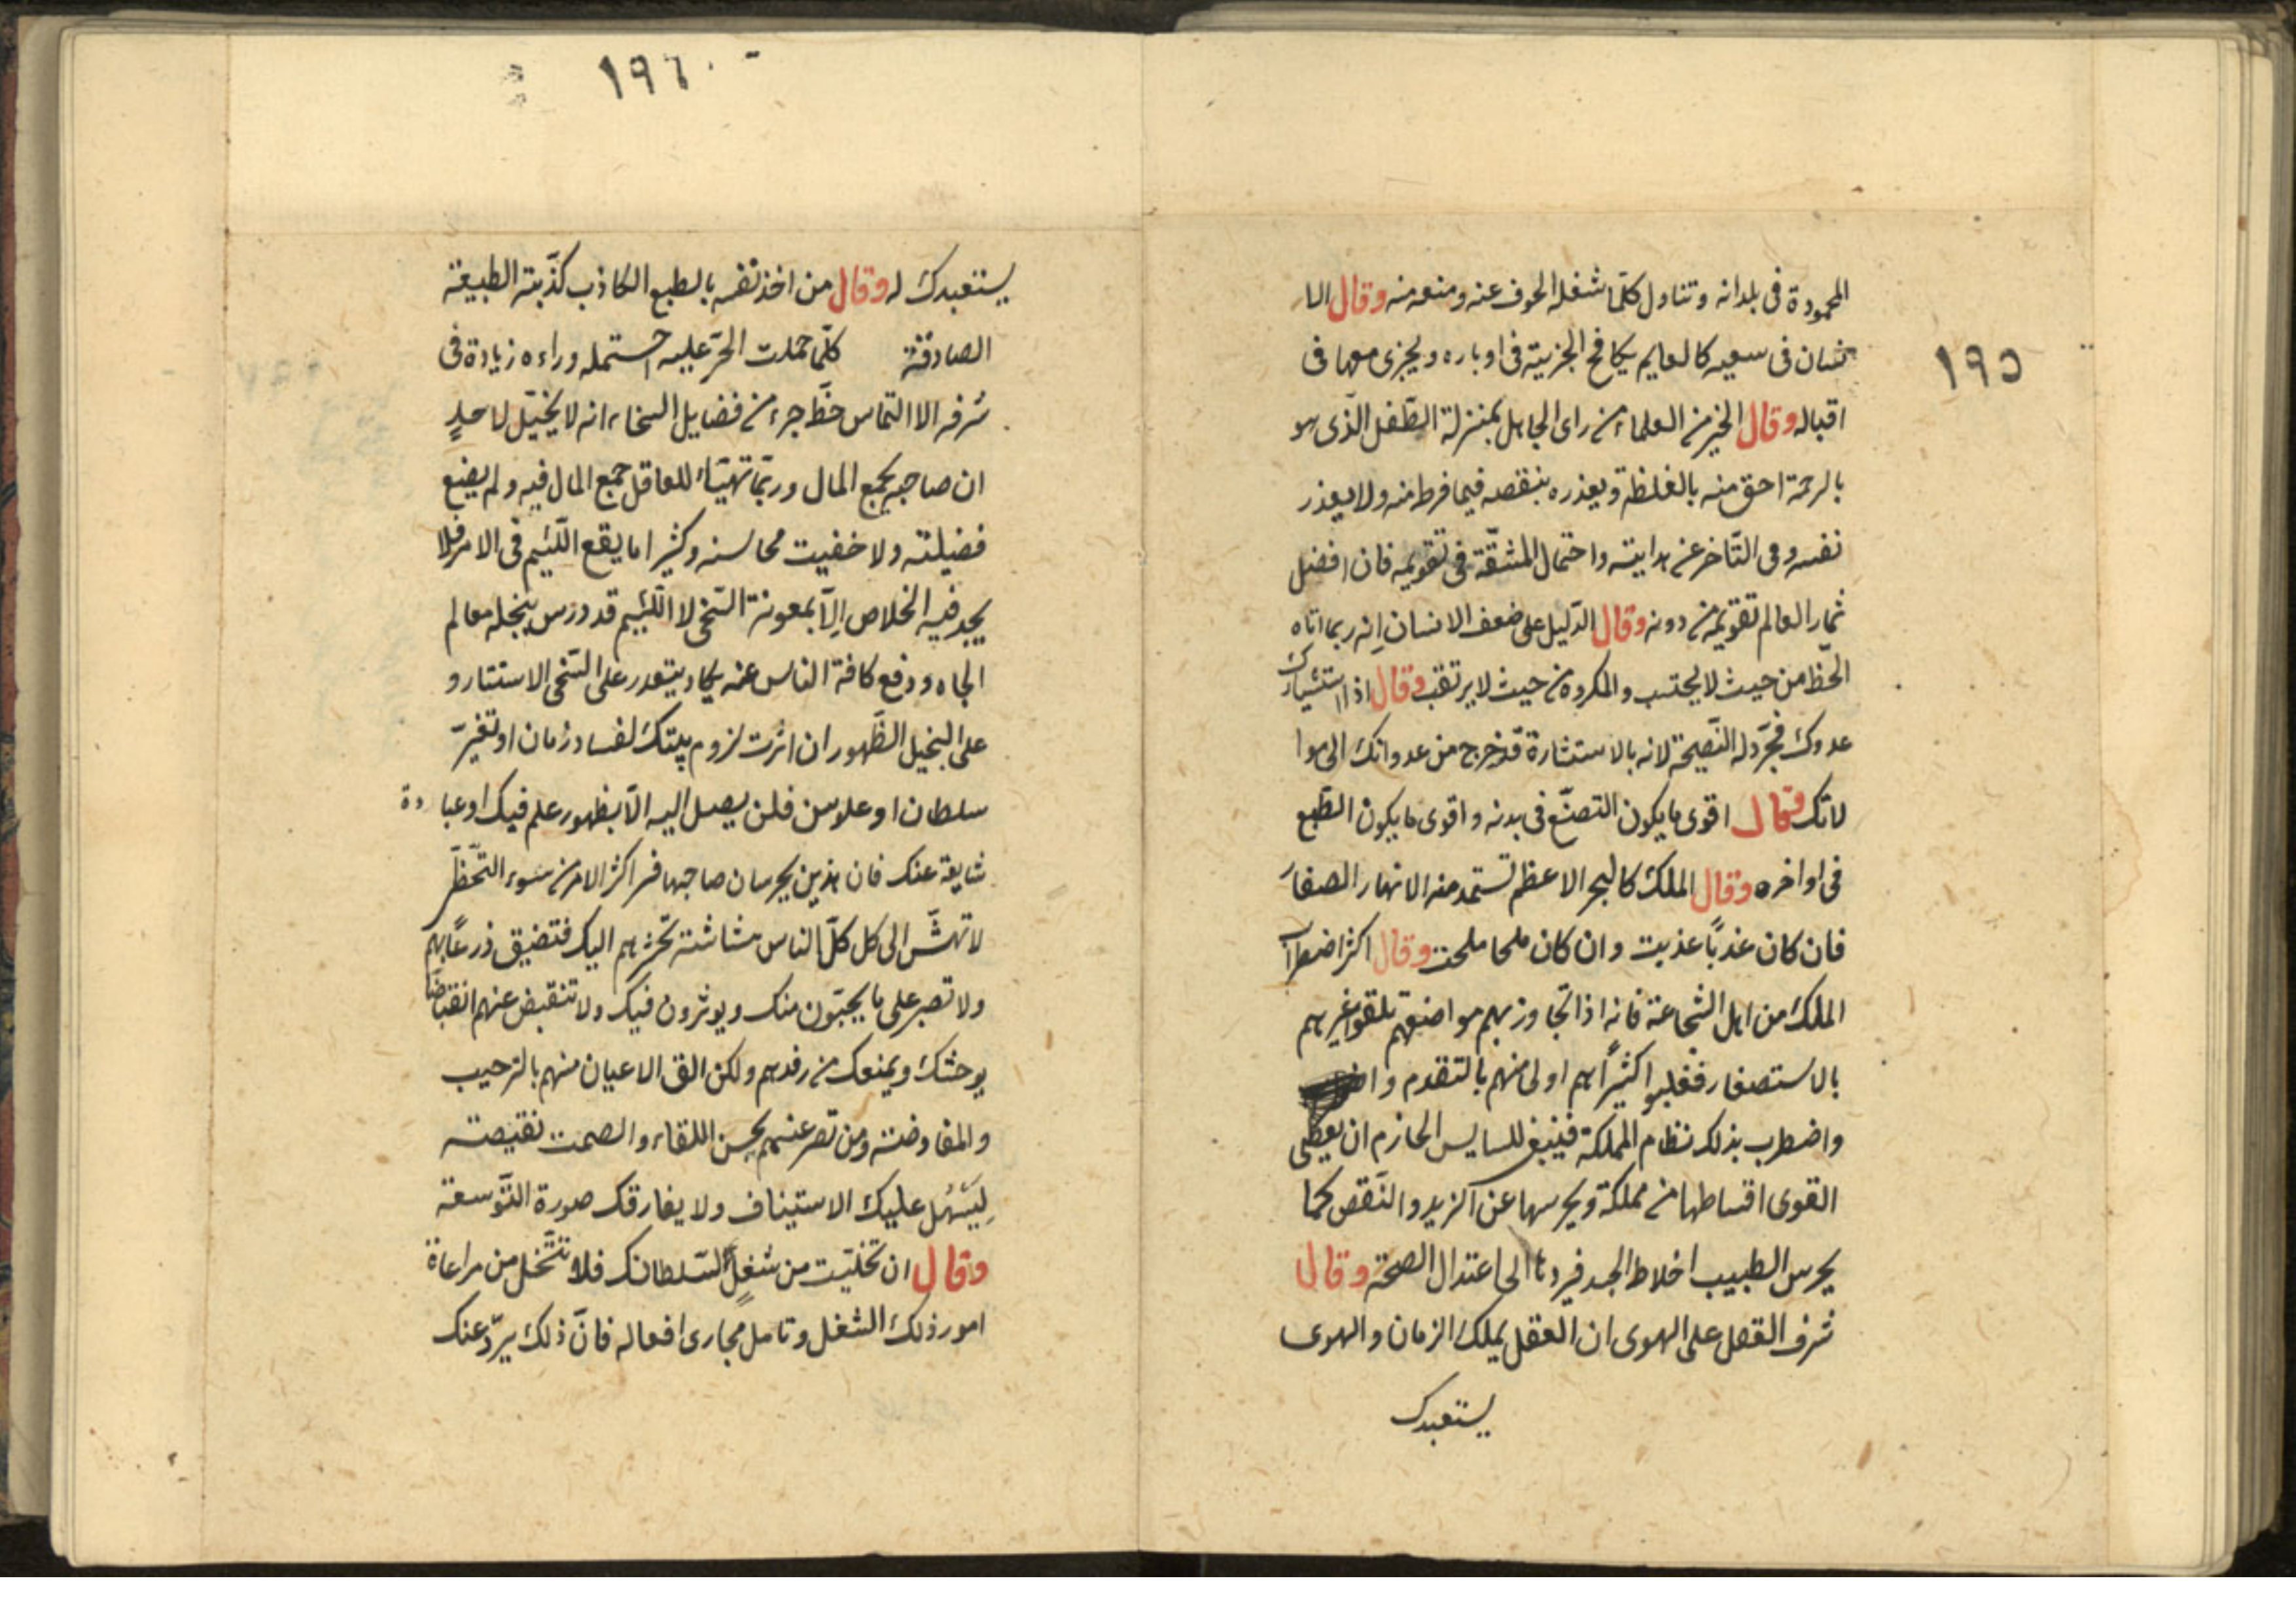 ١٩٥
المحمودة فى بلدانه وتناول كلّما شغله الخوف عنه ومنعه منه وقال الا
نسان فى سعيه كالعايم يكافح الجزية فى ادباره ويجرى معها فى
اقباله وقال الخير من العلماء من راى الجاهل بمنزلة الطّفل الّذى هو
بالرحمة احق منه بالغلظة ويعذره بنقصه فيما فرط منه ولا يعذر
نفسه فى التّاخر عن هدايته واحتمال المشقّة فى تقويمه فان افضل
ثمار العالم تقويمه من دونه وقال الدّليل على ضعف الانسان انه ربما اتاه
الحّظ من حيث لا يحتسب والمكروه من حيث لا يرتقب وقال اذا استشارك
عدوك فجرّد له النّصيحة لانه بالاستشارة قد خرج من عدوانك الى موا
لاتك وقال اقوى ما يكون التصنّع فى بدنه واقوى ما يكون الطّبع
فى اواخره وقال الملك كالبحر الاعظم تستمد منه الانهار الصغار
فان كان عذبًا عذبت وان كان ملحا ملحت وقال اكثر اضطراب
الملك من اهل الشّجاعة فانه اذا تجاوز بهم مواضعهم تلقوا غيرهم
بالاستصغار فغلبوا كثيرًا هم اولى منهم بالتقدم
واضطرب بذلك نظام المملكة فينبغى للسايس الحازم ان يعطى
القوى اقساطها من مملكة ويحرسها عن الزيد والنّقص كما
يحرس الطبيب اخلاط الجسد فيردها الى اعتدال الصحة وقال
شرف العقل على الهوى ان العقل يملك الزمان والهوى
يستعبدك
١٩٦
يستعبدك له وقال من اخذ نفسه بالطبع الكاذب كذّبته الطبيعة
الصادقة كلّما حملت الحرّ عليه احتمله وراءه زيادة فى
شرفه الا التماس حظّ جزء من فضايل السخاء انه لا يخيّل لاحدٍ
ان صاحبه يجمع المال وربّما تهيّاء للعاقل جمع المال فيه ولم يضع
فضيلته ولا خفيت محاسنه وكثيرا ما يقع اللّئيم فى الامر فلا
يجد فيه الخلاص اِلّا بمعونة السّخى لا اللّئيم قد درس بنجله معالم
الجاه ودفع كافة الناس عنه يكاد يتعدر على السّخى الاستتار و
على البخيل الظّهور ان اثرت لزوم بيتك لفساد زمان او تغيّر
سلطان او علو سن فلن يصل اليه الّا بظهور علم فيك او عبادة
شايعة عنك فان هذين يحرسان صاحبها فى اكثر الامر من سوء التّحظّر
لا تهشّ الى كل كلّ الناس هشاشته تحثهم اليك فتضيق ذرعًا بهم
ولا تصبر على ما يحبّون منك ويوثرون فيك ولا تنقبض عنهم انقباضًا
يوحشك ويمنعك من رفدهم ولكن الق الاعيان منهم بالترحيب
والمفاوضة ومن قصر عنهم بحسن اللقاء والصمت نقيصته
ليَسَهُل عليك الاستيناف ولا يفارقك صورة التّوسعة
وقال ان تخلّيت من شغلٍ لسّلطانك فلا تتّخل من مراعاة
امور ذلك الشغل وتامل مجارى افعاله فانّ ذلك يردّ عنك